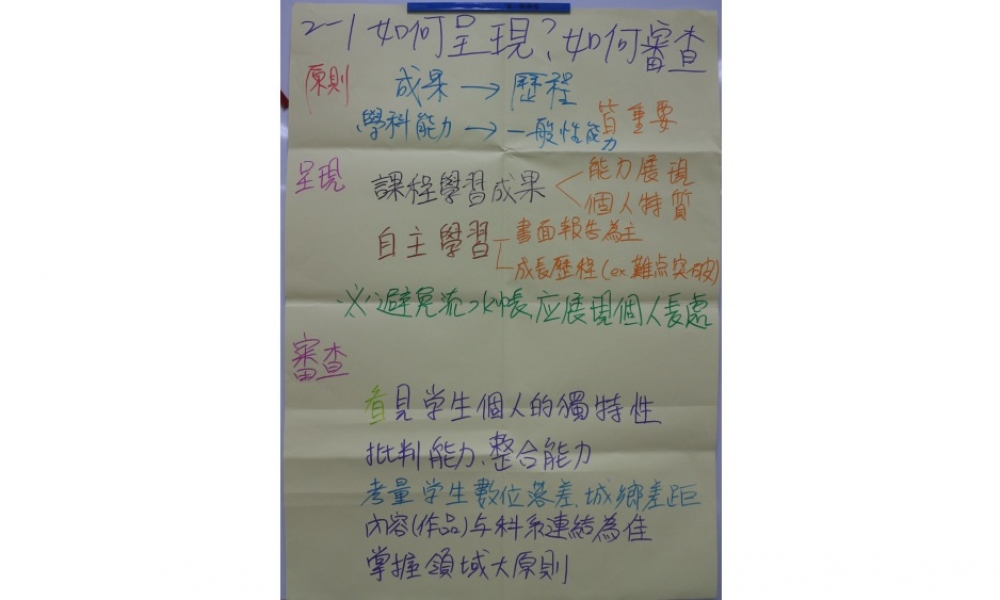 2-1 如何呈現?如何審查
原則 成果 → 歷程
學科能力 → 一般性能力 質重要
呈現 課程學習成果 < 能力展現
個人特質
自主學習 書面報告為主
成長歷程(ex難点突破)
※避免流水帳,应展現個人長處
審查
看見学生個人的獨特性
批判能力、整合能力
考量学生數位落差、城鄉差距
內容(作品)与科系連結為佳
掌握領域大原則